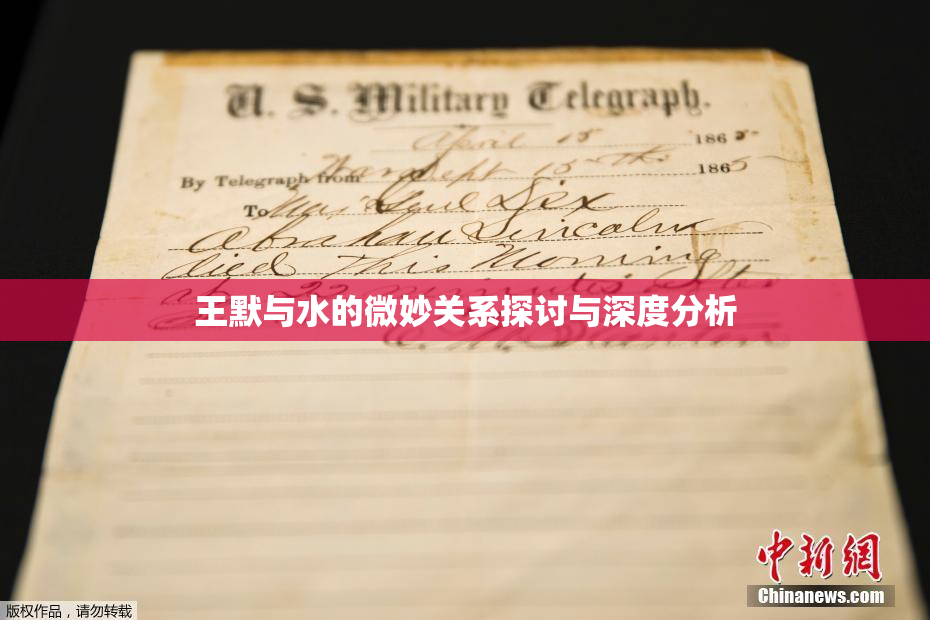 U. S. Military Telegraph.
April 15 1865
By Telegraph from War Dept 15th 1865
To Maj Genl Dix
Abraham Lincoln
died This Morning
at 22 minutes after
王默与水的微妙关系探讨与深度分析
中新网
Chinanews.com
版权作品,请勿转载